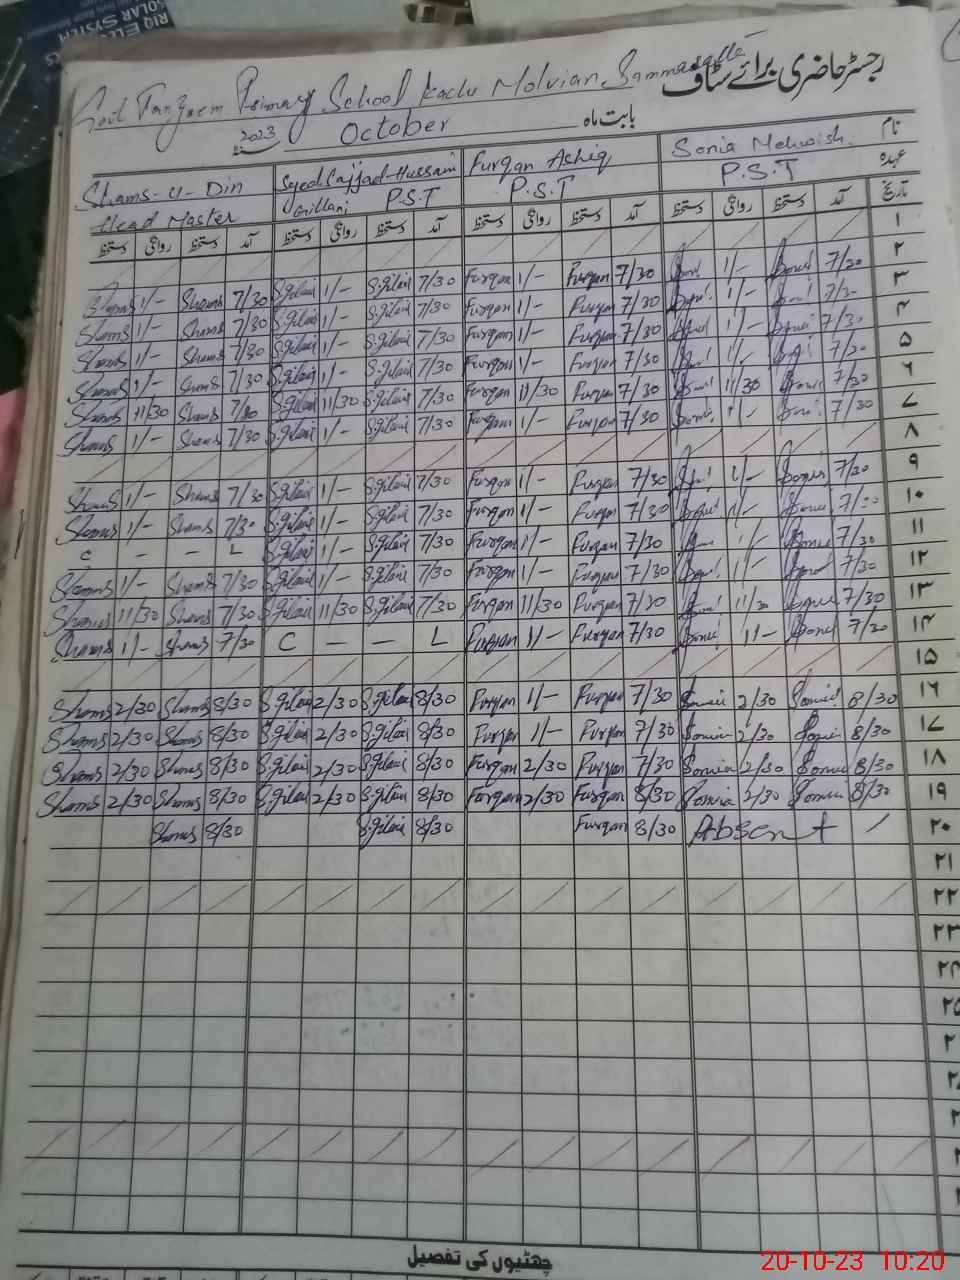 RIQ ELE
SOLAR SYSTEM
رجسٹر حاضری برائے سٹاف
Govt Tanzeem Primary School Kachi Molvian Sammasatta
2023 October بابت ماہ
نام
Shams-U-Din Syed Sajjad-Hussain Furqan Ashiq Sonia Mehwish
عہدہ
Head Master Gillani P.S.T P.S.T P.S.T
تاریخ
دستخط روانگی دستخط آمد دستخط روانگی دستخط آمد دستخط روانگی دستخط آمد دستخط روانگی دستخط آمد
۱
Shams 1/- Shams 7/30 S.gilani 1/- S.gilani 7/30 Furqan 1/- Furqan 7/30 1/- 7/30 ۲
Shams 1/- Shams 7/30 S.gilani 1/- S.gilani 7/30 Furqan 1/- Furqan 7/30 1/- 7/30 ۳
Shams 1/- Shams 7/30 S.gilani 1/- S.gilani 7/30 Furqan 1/- Furqan 7/30 1/- 7/30 ۴
Shams 1/- Shams 7/30 S.gilani 1/- S.gilani 7/30 Furqan 1/- Furqan 7/30 1/- 7/30 ۵
Shams 11/30 Shams 7/30 S.gilani 11/30 S.gilani 7/30 Furqan 11/30 Furqan 7/30 11/30 7/30 ۶
Shams 1/- Shams 7/30 S.gilani 1/- S.gilani 7/30 Furqan 1/- Furqan 7/30 1/- 7/30 ۷
۸
Shams 1/- Shams 7/30 S.gilani 1/- S.gilani 7/30 Furqan 1/- Furqan 7/30 1/- 7/30 ۹
Shams 1/- Shams 7/30 S.gilani 1/- S.gilani 7/30 Furqan 1/- Furqan 7/30 1/- 7/30 ۱۰
C - - L S.gilani 1/- S.gilani 7/30 Furqan 1/- Furqan 7/30 1/- 7/30 ۱۱
Shams 1/- Shams 7/30 S.gilani 1/- S.gilani 7/30 Furqan 1/- Furqan 7/30 1/- 7/30 ۱۲
Shams 11/30 Shams 7/30 S.gilani 11/30 S.gilani 7/30 Furqan 11/30 Furqan 7/30 11/30 7/30 ۱۳
Shams 1/- Shams 7/30 C - - L Furqan 1/- Furqan 7/30 1/- 7/30 ۱۴
۱۵
Shams 2/30 Shams 8/30 S.gilani 2/30 S.gilani 8/30 Furqan 1/- Furqan 7/30 Sonia 2/30 Sonia 8/30 ۱۶
Shams 2/30 Shams 8/30 S.gilani 2/30 S.gilani 8/30 Furqan 1/- Furqan 7/30 Sonia 2/30 Sonia 8/30 ۱۷
Shams 2/30 Shams 8/30 S.gilani 2/30 S.gilani 8/30 Furqan 2/30 Furqan 7/30 Sonia 2/30 Sonia 8/30 ۱۸
Shams 2/30 Shams 8/30 S.gilani 2/30 S.gilani 8/30 Furqan 2/30 Furqan 8/30 Sonia 2/30 Sonia 8/30 ۱۹
Shams 8/30 S.gilani 8/30 Furqan 8/30 Absent ۲۰
۲۱
۲۲
۲۳
چھٹیوں کی تفصیل
20-10-23 10:20